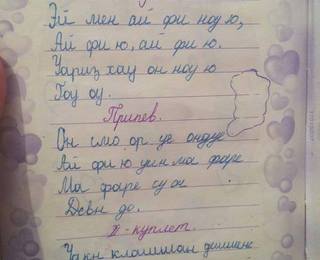 Эй мен ай фи ноу ю,
Ай фи ю, ай фи ю.
Уариз хау он ноу ю
Гоу оу.
Припев.
Он смо ор уе ондуе
Ай фи ю уин ма фаре
Ма фаре су оч
Девн до.
II - куплет.